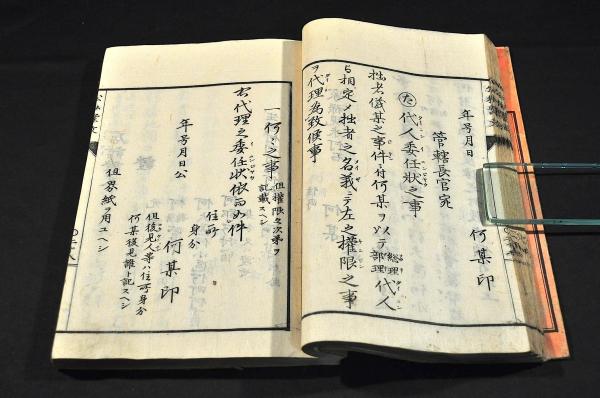 年号月日
何某印
管轄長官宛
た 代人委任状之事
拙者儀某之事件ニ付何某ヲ以テ総理部理代人
ト相定メ拙者之名義ニテ左之権限之事
ヲ代理為致候事
一何々之事 但権限之次第ヲ記載スヘシ
右代理之委任状依而如件
住所
身分
年号月日 何某印
但後見人等ハ住所身分
何某後見誰ト記スヘシ
但界紙ヲ用ユヘシ